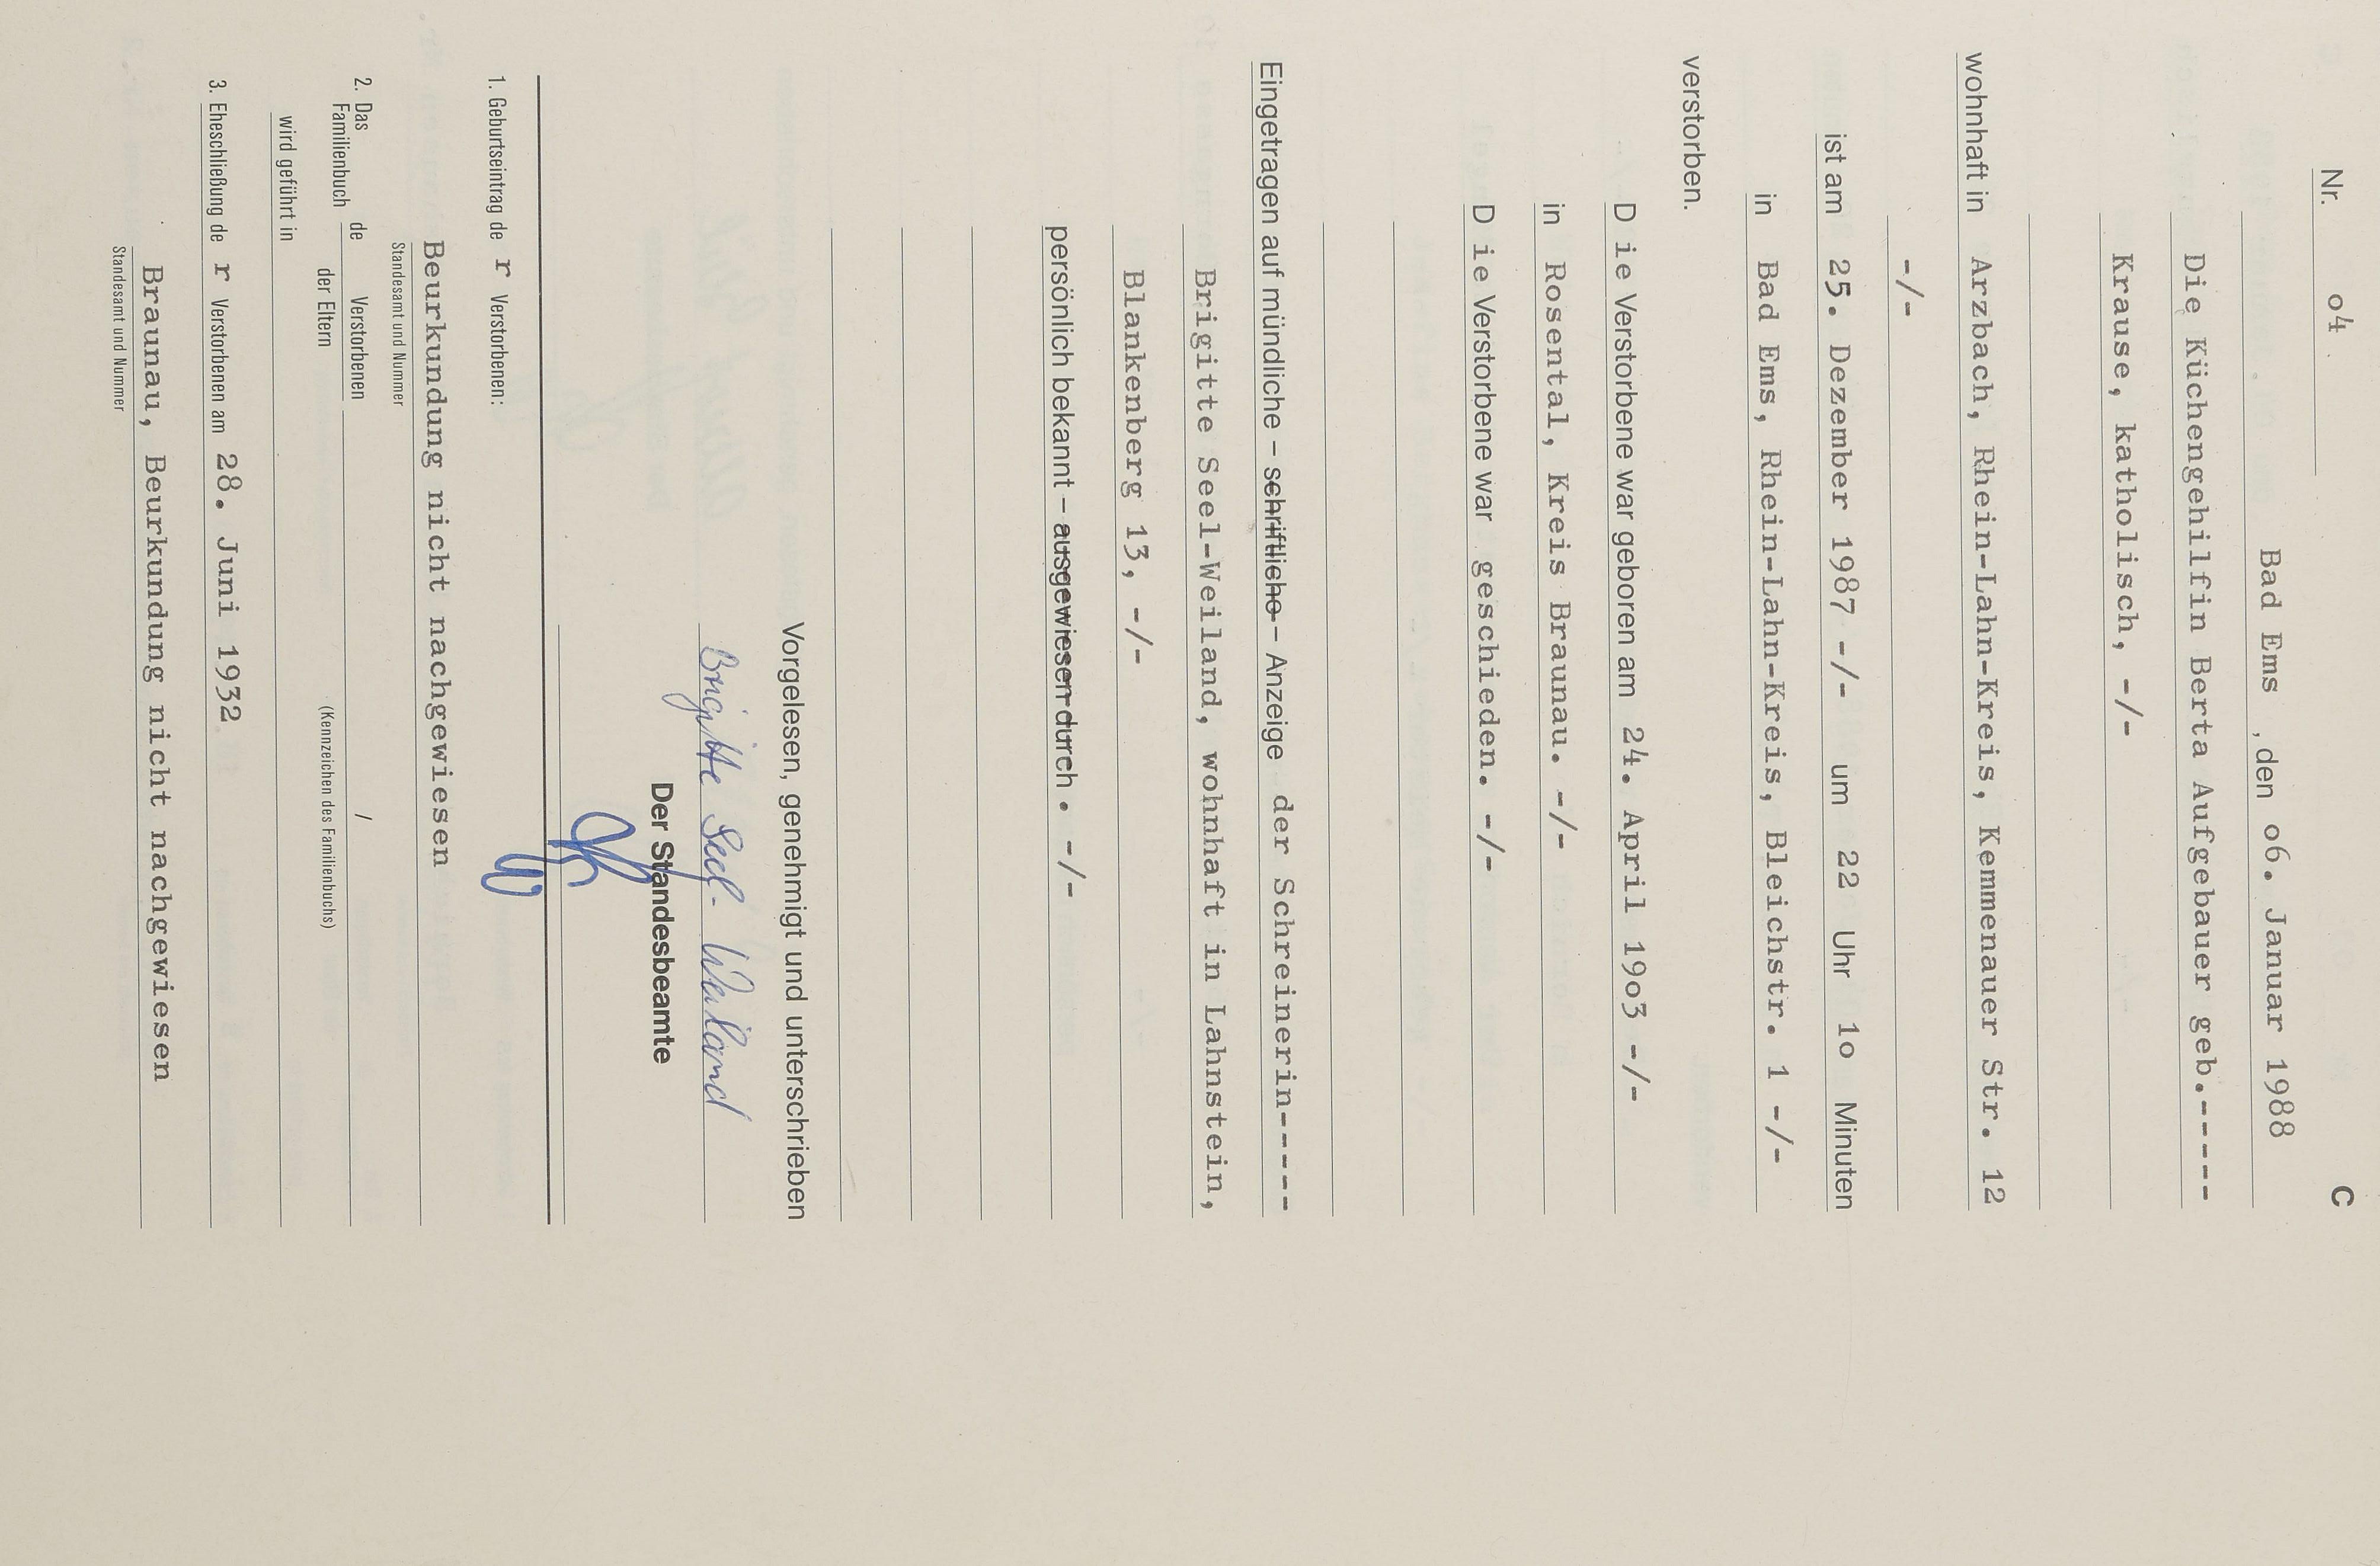 C
Nr. o4
Bad Ems , den o6. Januar 1988
Die Küchengehilfin Berta Aufgebauer geb.-----
Krause, katholisch, -/-
wohnhaft in Arzbach, Rhein-Lahn-Kreis, Kemmenauer Str. 12
-/-
ist am 25. Dezember 1987 -/- um 22 Uhr 1o Minuten
in Bad Ems, Rhein-Lahn-Kreis, Bleichstr. 1 -/-
verstorben.
D ie Verstorbene war geboren am 24. April 19o3 -/-
in Rosental, Kreis Braunau. -/-
D ie Verstorbene war geschieden. -/-
Eingetragen auf mündliche – schriftliche – Anzeige der Schreinerin-----
Brigitte Seel-Weiland, wohnhaft in Lahnstein,
Blankenberg 13, -/-
persönlich bekannt – ausgewiesen durch . -/-
Vorgelesen, genehmigt und unterschrieben
Brigitte Seel-Weiland
Der Standesbeamte
1. Geburtseintrag de r Verstorbenen:
Beurkundung nicht nachgewiesen
Standesamt und Nummer
2. Das Familienbuch de Verstorbenen /
der Eltern (Kennzeichen des Familienbuchs)
wird geführt in
3. Eheschließung de r Verstorbenen am 28. Juni 1932
Braunau, Beurkundung nicht nachgewiesen
Standesamt und Nummer